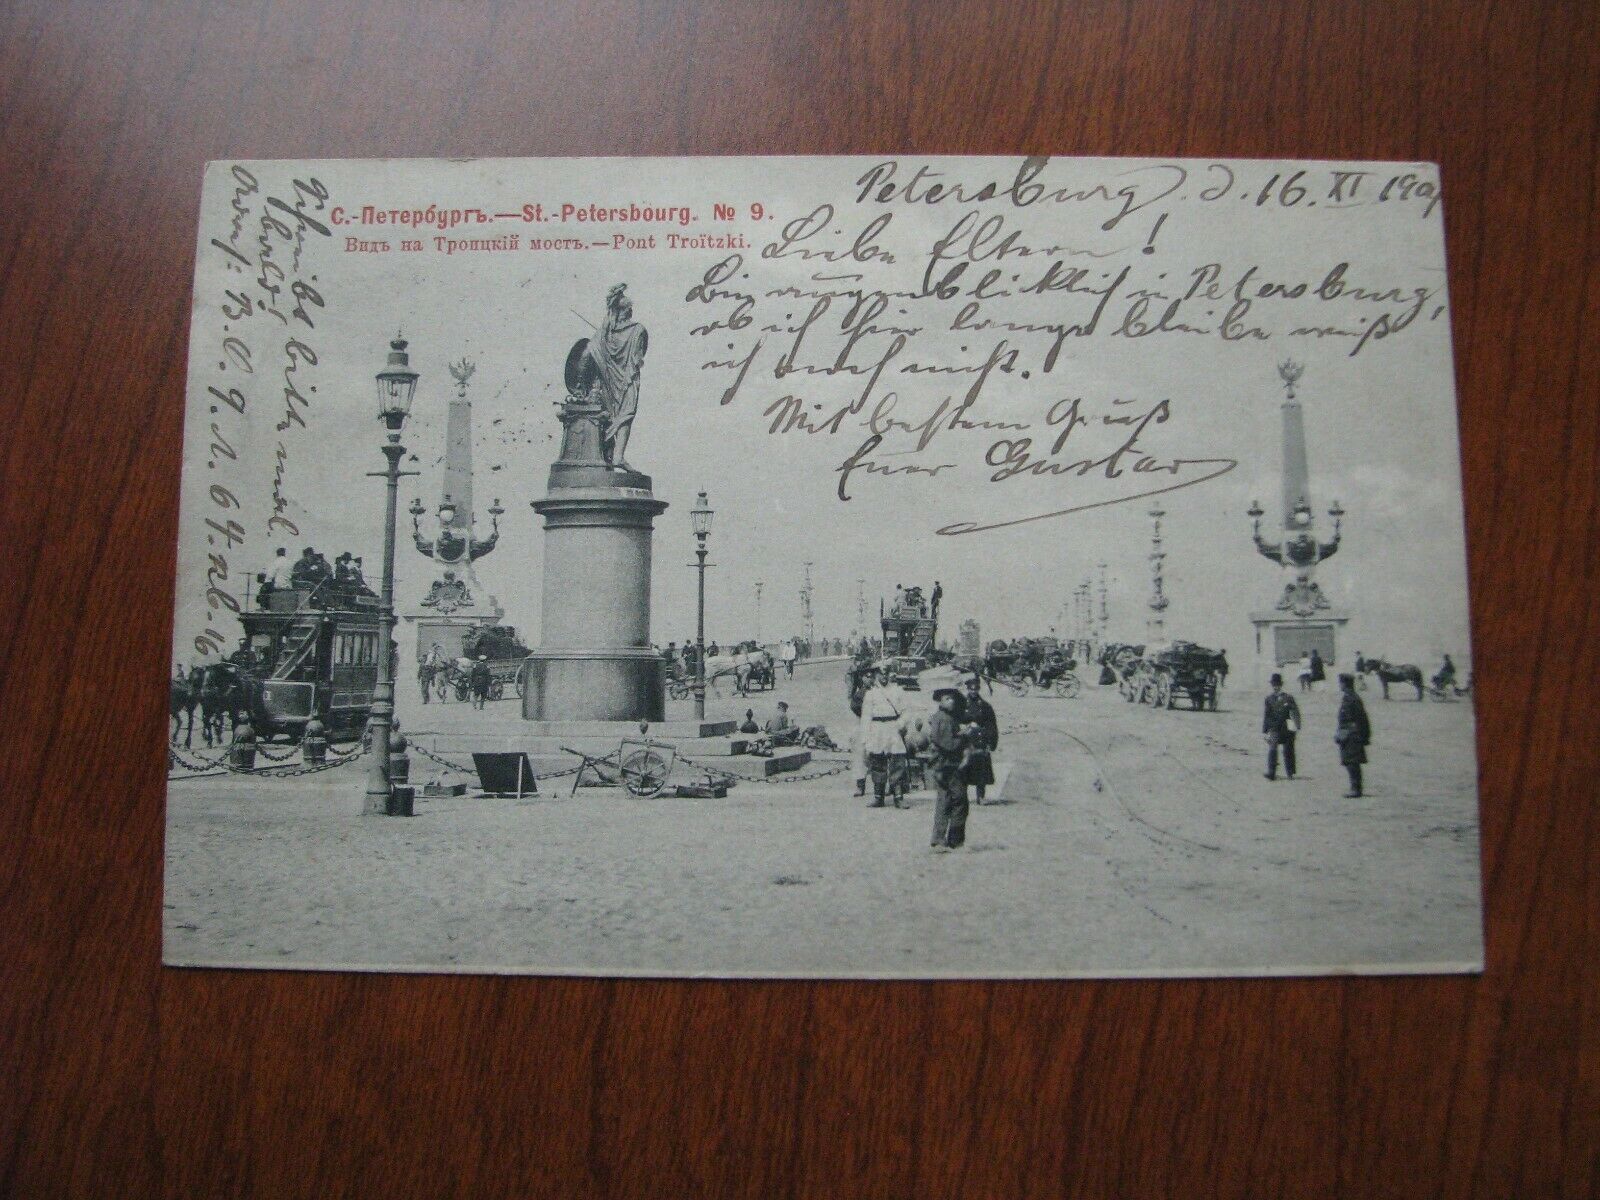 С.-Петербургъ.—St.-Petersbourg. № 9.
Видъ на Троицкій мостъ.—Pont Troïtzki.
Petersburg. d. 16. XI 190
Liebe Eltern!
Bin augenblicklich in Petersburg,
ob ich hier lange bleibe weiß
ich auch nicht.
Mit bestem Gruß
Euer Gustav
Schreibt bitte mal
bald.
B. O. 9. Л. 64. кв. 16